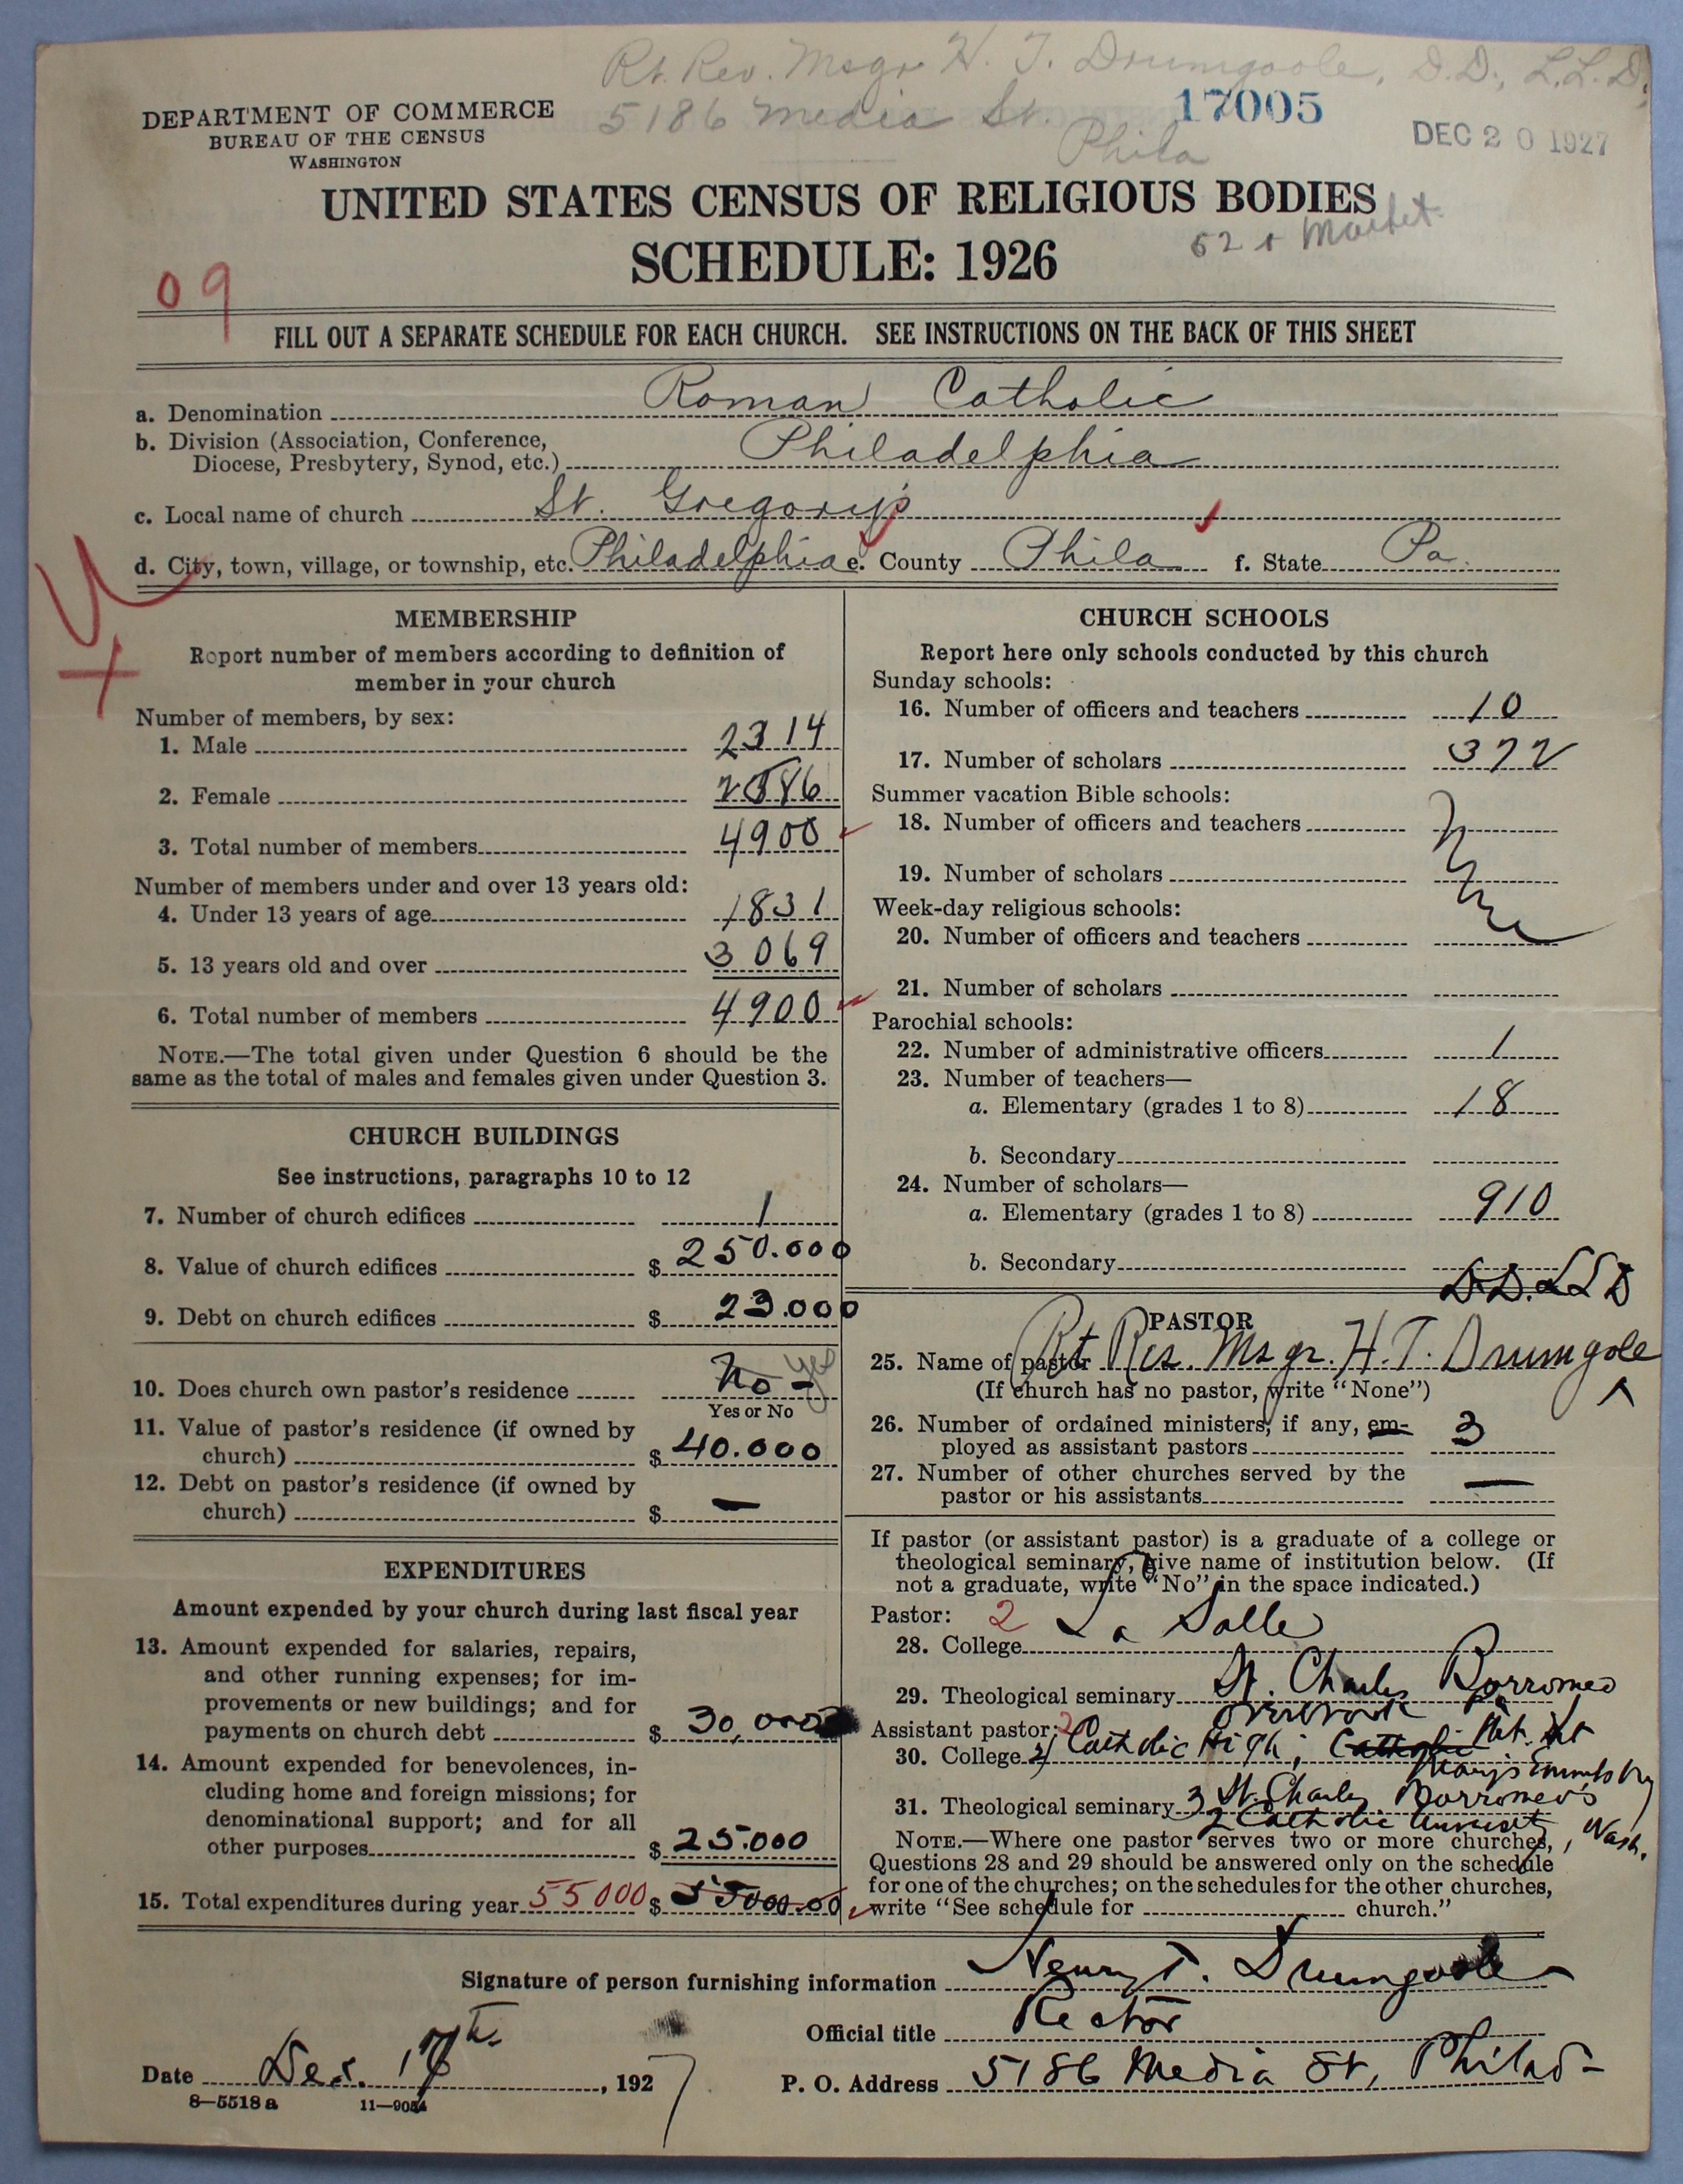 Rt. Rev. Msgr H. T. Drumgoole, D.D., L.L.D.
5186 Media St.
Phila
17005
DEC 20 1927
DEPARTMENT OF COMMERCE
BUREAU OF THE CENSUS
WASHINGTON
UNITED STATES CENSUS OF RELIGIOUS BODIES
52 & Market
SCHEDULE: 1926
09
FILL OUT A SEPARATE SCHEDULE FOR EACH CHURCH. SEE INSTRUCTIONS ON THE BACK OF THIS SHEET
a. Denomination Roman Catholic
b. Division (Association, Conference,
Diocese, Presbytery, Synod, etc.) Philadelphia
c. Local name of church St. Gregory's
d. City, town, village, or township, etc. Philadelphia e. County Phila f. State Pa.
MEMBERSHIP
Report number of members according to definition of
member in your church
Number of members, by sex:
1. Male 2314
2. Female 2586
3. Total number of members 4900
Number of members under and over 13 years old:
4. Under 13 years of age 1831
5. 13 years old and over 3069
6. Total number of members 4900
NOTE.—The total given under Question 6 should be the
same as the total of males and females given under Question 3.
CHURCH BUILDINGS
See instructions, paragraphs 10 to 12
7. Number of church edifices 1
8. Value of church edifices $ 250.000
9. Debt on church edifices $ 23.000
10. Does church own pastor's residence No - yes
Yes or No
11. Value of pastor's residence (if owned by
church) $ 40.000
12. Debt on pastor's residence (if owned by
church) $ —
EXPENDITURES
Amount expended by your church during last fiscal year
13. Amount expended for salaries, repairs,
and other running expenses; for im-
provements or new buildings; and for
payments on church debt $ 30,000
14. Amount expended for benevolences, in-
cluding home and foreign missions; for
denominational support; and for all
other purposes $ 25.000
15. Total expenditures during year 55000 $ 55000.00
CHURCH SCHOOLS
Report here only schools conducted by this church
Sunday schools:
16. Number of officers and teachers 10
17. Number of scholars 372
Summer vacation Bible schools:
18. Number of officers and teachers
19. Number of scholars
None
Week-day religious schools:
20. Number of officers and teachers
21. Number of scholars
Parochial schools:
22. Number of administrative officers 1
23. Number of teachers—
a. Elementary (grades 1 to 8) 18
b. Secondary
24. Number of scholars—
a. Elementary (grades 1 to 8) 910
b. Secondary
D.D. LLD
PASTOR
25. Name of pastor Rt Rev. Msgr. H. T. Drumgole
(If church has no pastor, write "None")
26. Number of ordained ministers, if any, em-
ployed as assistant pastors 3
27. Number of other churches served by the
pastor or his assistants —
If pastor (or assistant pastor) is a graduate of a college or
theological seminary, give name of institution below. (If
not a graduate, write "No" in the space indicated.)
Pastor: 2
28. College La Salle
29. Theological seminary St. Charles Borromeo
Overbrook Pa
Assistant pastor: 2
30. College 2 Catholic High; Catholic Mt. St
Marys Emmitsbg
31. Theological seminary 3 St. Charles Borromeo's
2 Catholic Univ , Wash.
NOTE.—Where one pastor serves two or more churches,
Questions 28 and 29 should be answered only on the schedule
for one of the churches; on the schedules for the other churches,
write "See schedule for church."
Signature of person furnishing information Henry T. Drumgoole
Official title Rector
Date Dec. 17th, 1927
P. O. Address 5186 Media St, Philad-
8—5518 a 11—9054